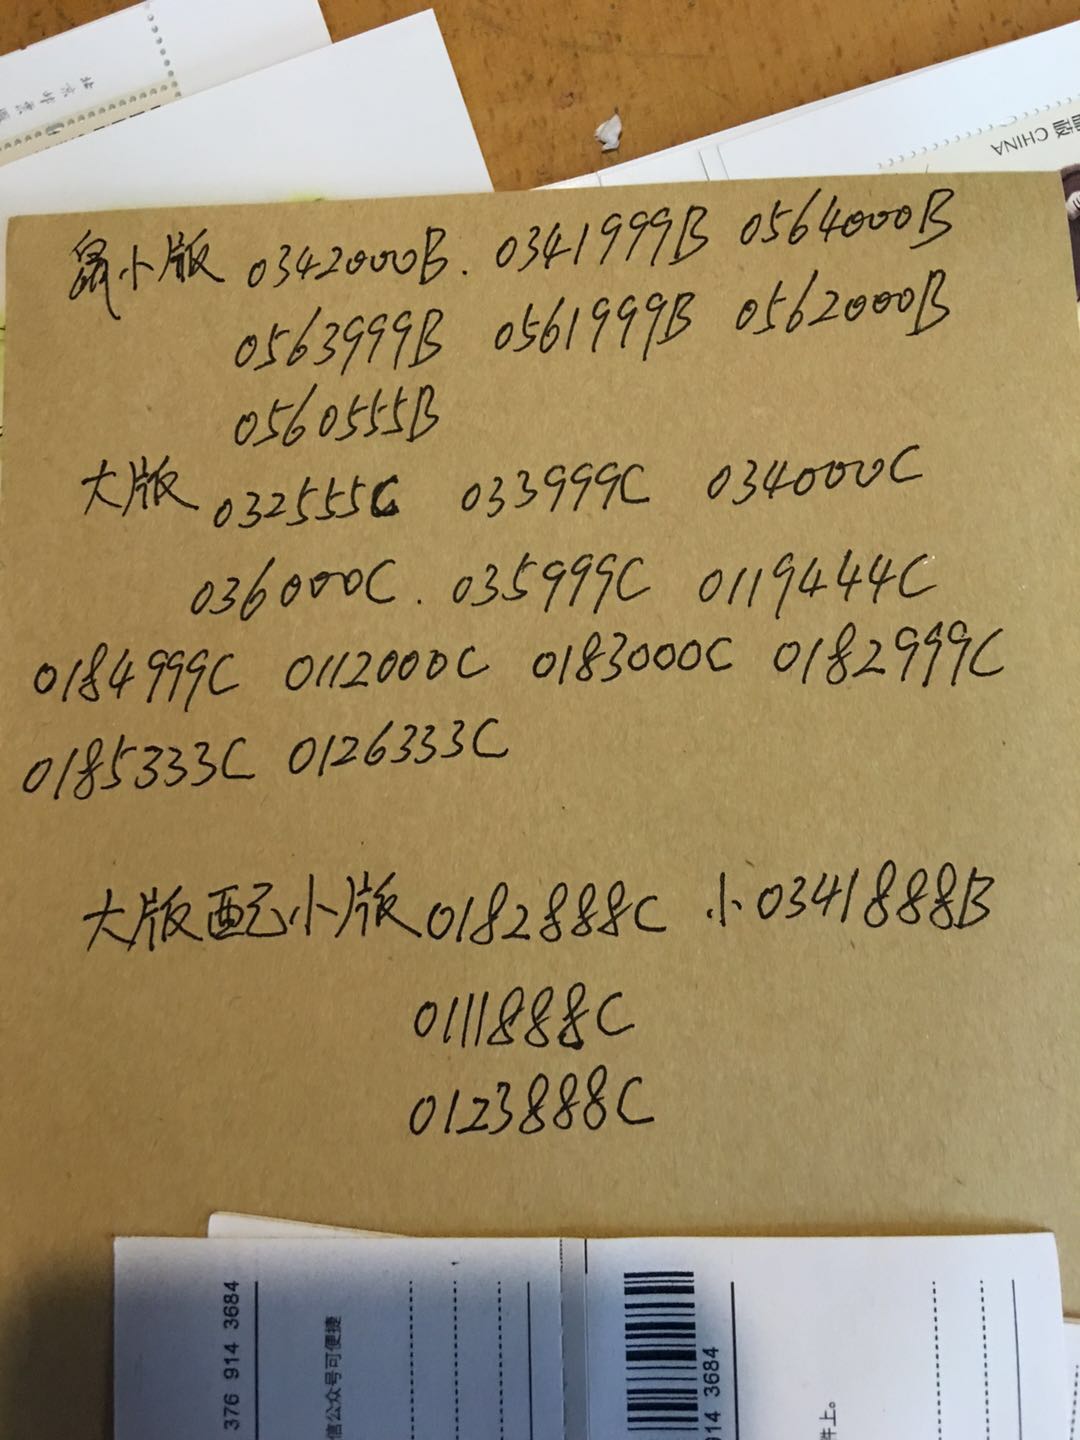 北京
CHINA
鼠小版 0342000B. 0341999B 0564000B
0563999B 0561999B 0562000B
0560555B
大版 032555C 033999C 034000C
036000C. 035999C 0119444C
0184999C 0112000C 0183000C 0182999C
0185333C 0126333C
大版配小版 0182888C 小 0341888B
0111888C
0123888C
376 914 3684
信公众号可便捷
914 3684
件上。